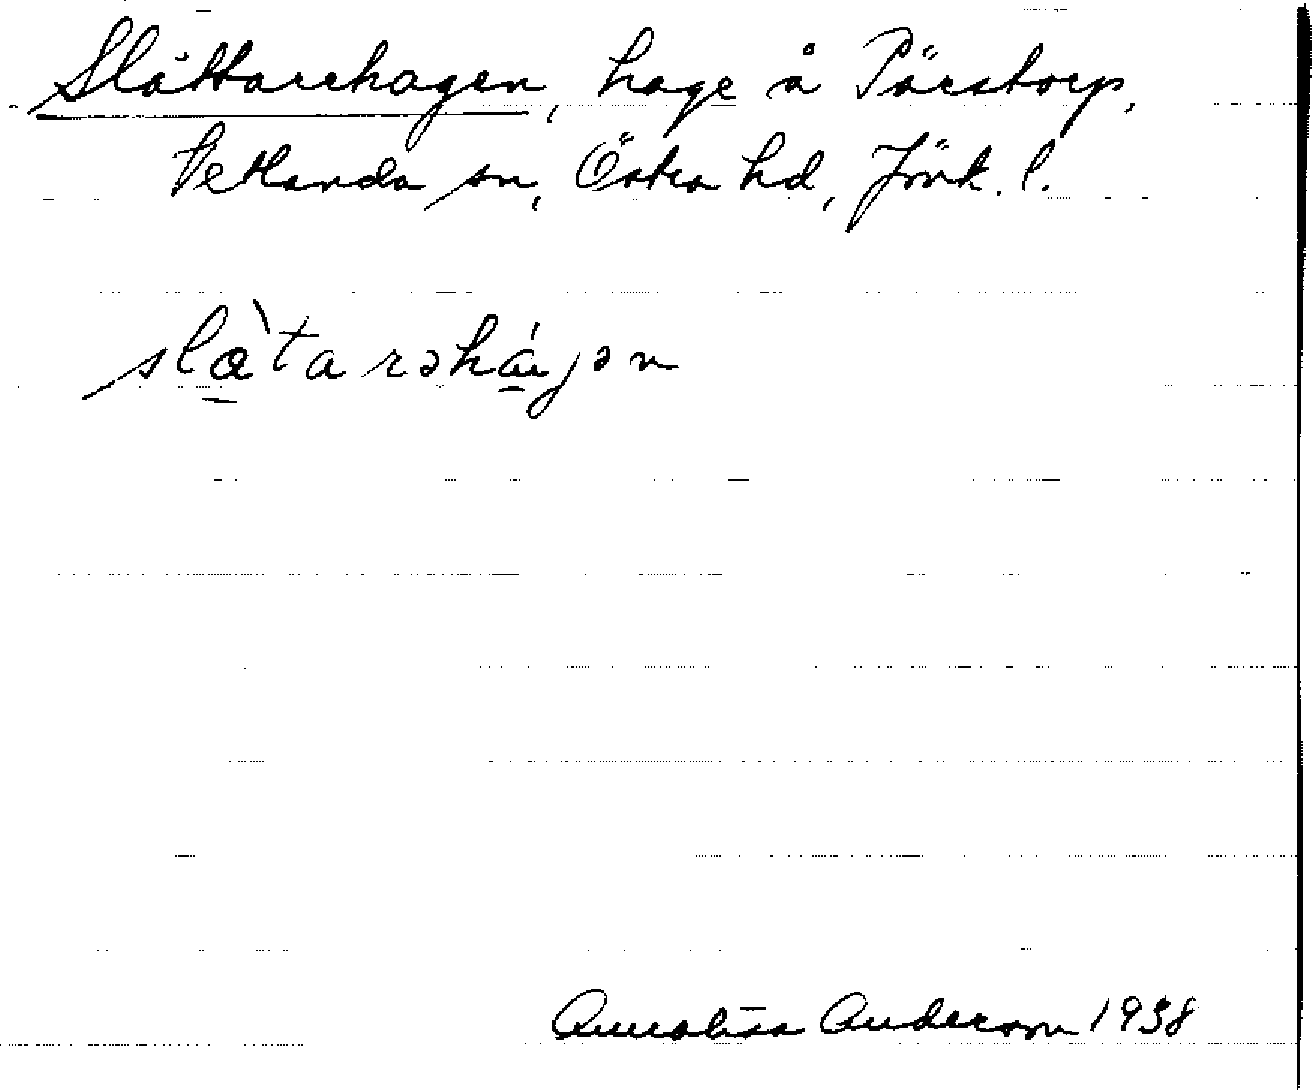 Slåttarehagen, hage å Pärstorp,
Vetlanda sn, Östra hd, Jönk. l.
slàtarəhájən
Annalisa Anderson 1938